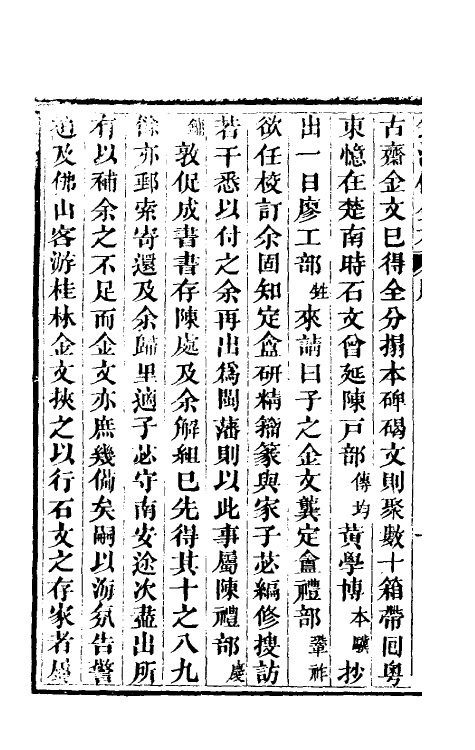 古齋金文已得全分搨本碑碣文則聚數十箱帶回粵
東憶在楚南時石文曾延陳戸部傳均黃學博本驥抄
出一日廖工部甡來請曰子之金文龔定盦禮部鞏祚
欲任校訂余固知定盦研精籀篆與家子苾編修搜訪
若干悉以付之余再出爲閩藩則以此事屬陳禮部慶
鏞敦促成書書存陳處及余解組已先得其十之八九
餘亦郵索寄還及余歸里適子苾守南安途次盡出所
有以補余之不足而金文亦庶幾備矣嗣以海氛告警
遁及佛山客游桂林金文挾之以行石文之存家者屢